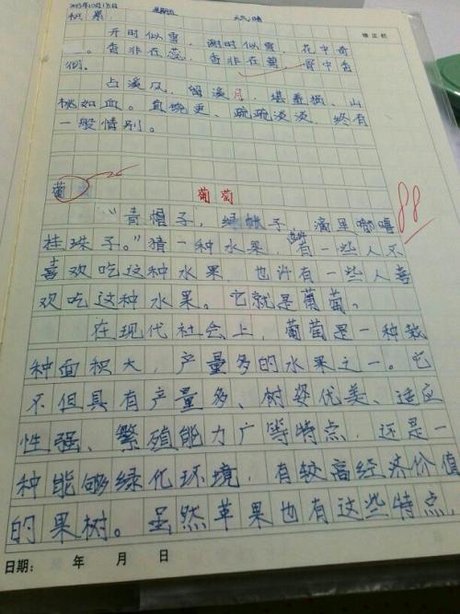 2013年10月15日 星期二 天气晴
梨 修正栏
开时似雪，谢时似雪，花中奇
。香非在蕊，香非在萼，骨中香
彻。
占溪风，留溪月，堪羞损、山
桃如血。直饶更、疏疏淡淡，终有
一般情别。
葡 葡萄 88
“青帽子，绿帐子，满里嘟噜
挂珠子。”猜一种水果，有一些人不
喜欢吃这种水果，也许有一些人喜
欢吃这种水果。它就是葡萄。
在现代社会上，葡萄是一种栽
种面积大，产量多的水果之一。它
不但具有产量多、树姿优美、适应
性强、繁殖能力广等特点，还是一
种能够绿化环境，有较高经济价值
的果树。虽然苹果也有这些特点，
日期： 年 月 日